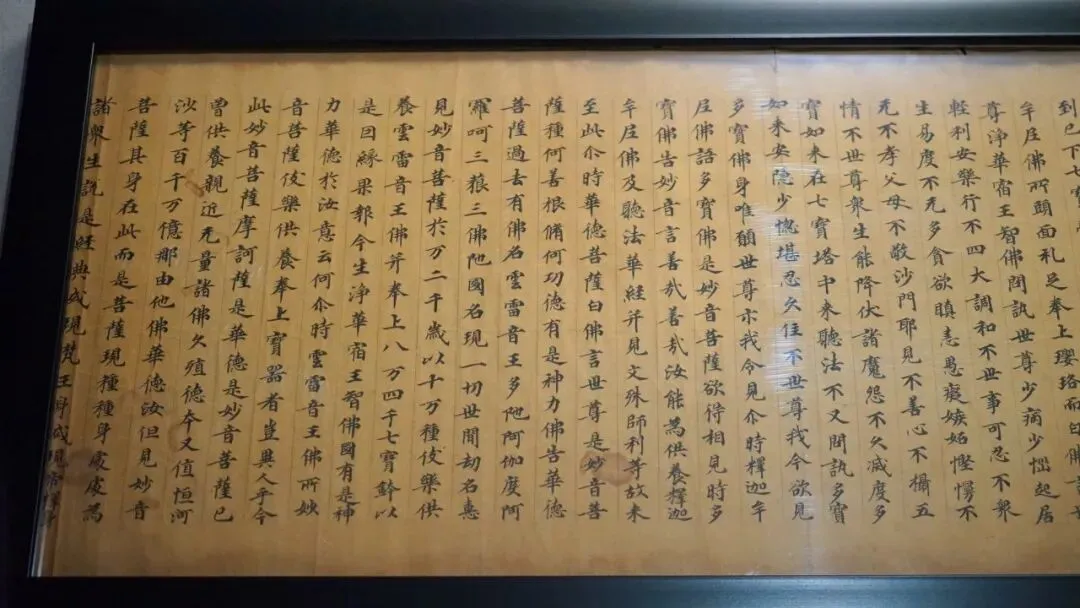 到已下七寶
牟尼佛所頭面礼足奉上瓔珞而白佛言世
尊淨華宿王智佛問訊世尊少病少惱起居
輕利安樂行不四大調和不世事可忍不衆
生易度不无多貪欲瞋恚愚癡嫉妬慳慢不
无不孝父母不敬沙門耶見不善心不攝五
情不世尊衆生能降伏諸魔怨不久滅度多
寶如来在七寶塔中来聽法不又問訊多寶
如来安隱少惱堪忍久住不世尊我今欲見
多寶佛身唯願世尊示我令見尒時釋迦牟
尼佛語多寶佛是妙音菩薩欲得相見時多
寶佛告妙音言善哉善哉汝能為供養釋迦
牟尼佛及聽法華經并見文殊師利等故来
至此尒時華德菩薩白佛言世尊是妙音菩
薩種何善根脩何功德有是神力佛告華德
菩薩過去有佛名雲雷音王多陁阿伽度阿
羅呵三藐三佛陁國名現一切世間劫名憙
見妙音菩薩於万二千歲以十万種伎樂供
養雲雷音王佛并奉上八万四千七寶鉢以
是因緣果報今生淨華宿王智佛國有是神
力華德於汝意云何尒時雲雷音王佛所妙
音菩薩伎樂供養奉上寶器者豈異人乎今
此妙音菩薩摩訶薩是華德是妙音菩薩已
曾供養親近无量諸佛久殖德本又值恒河
沙等百千万億那由他佛華德汝但見妙音
菩薩其身在此而是菩薩現種種身處處為
諸衆生說是經典或現梵王身或現帝釋身